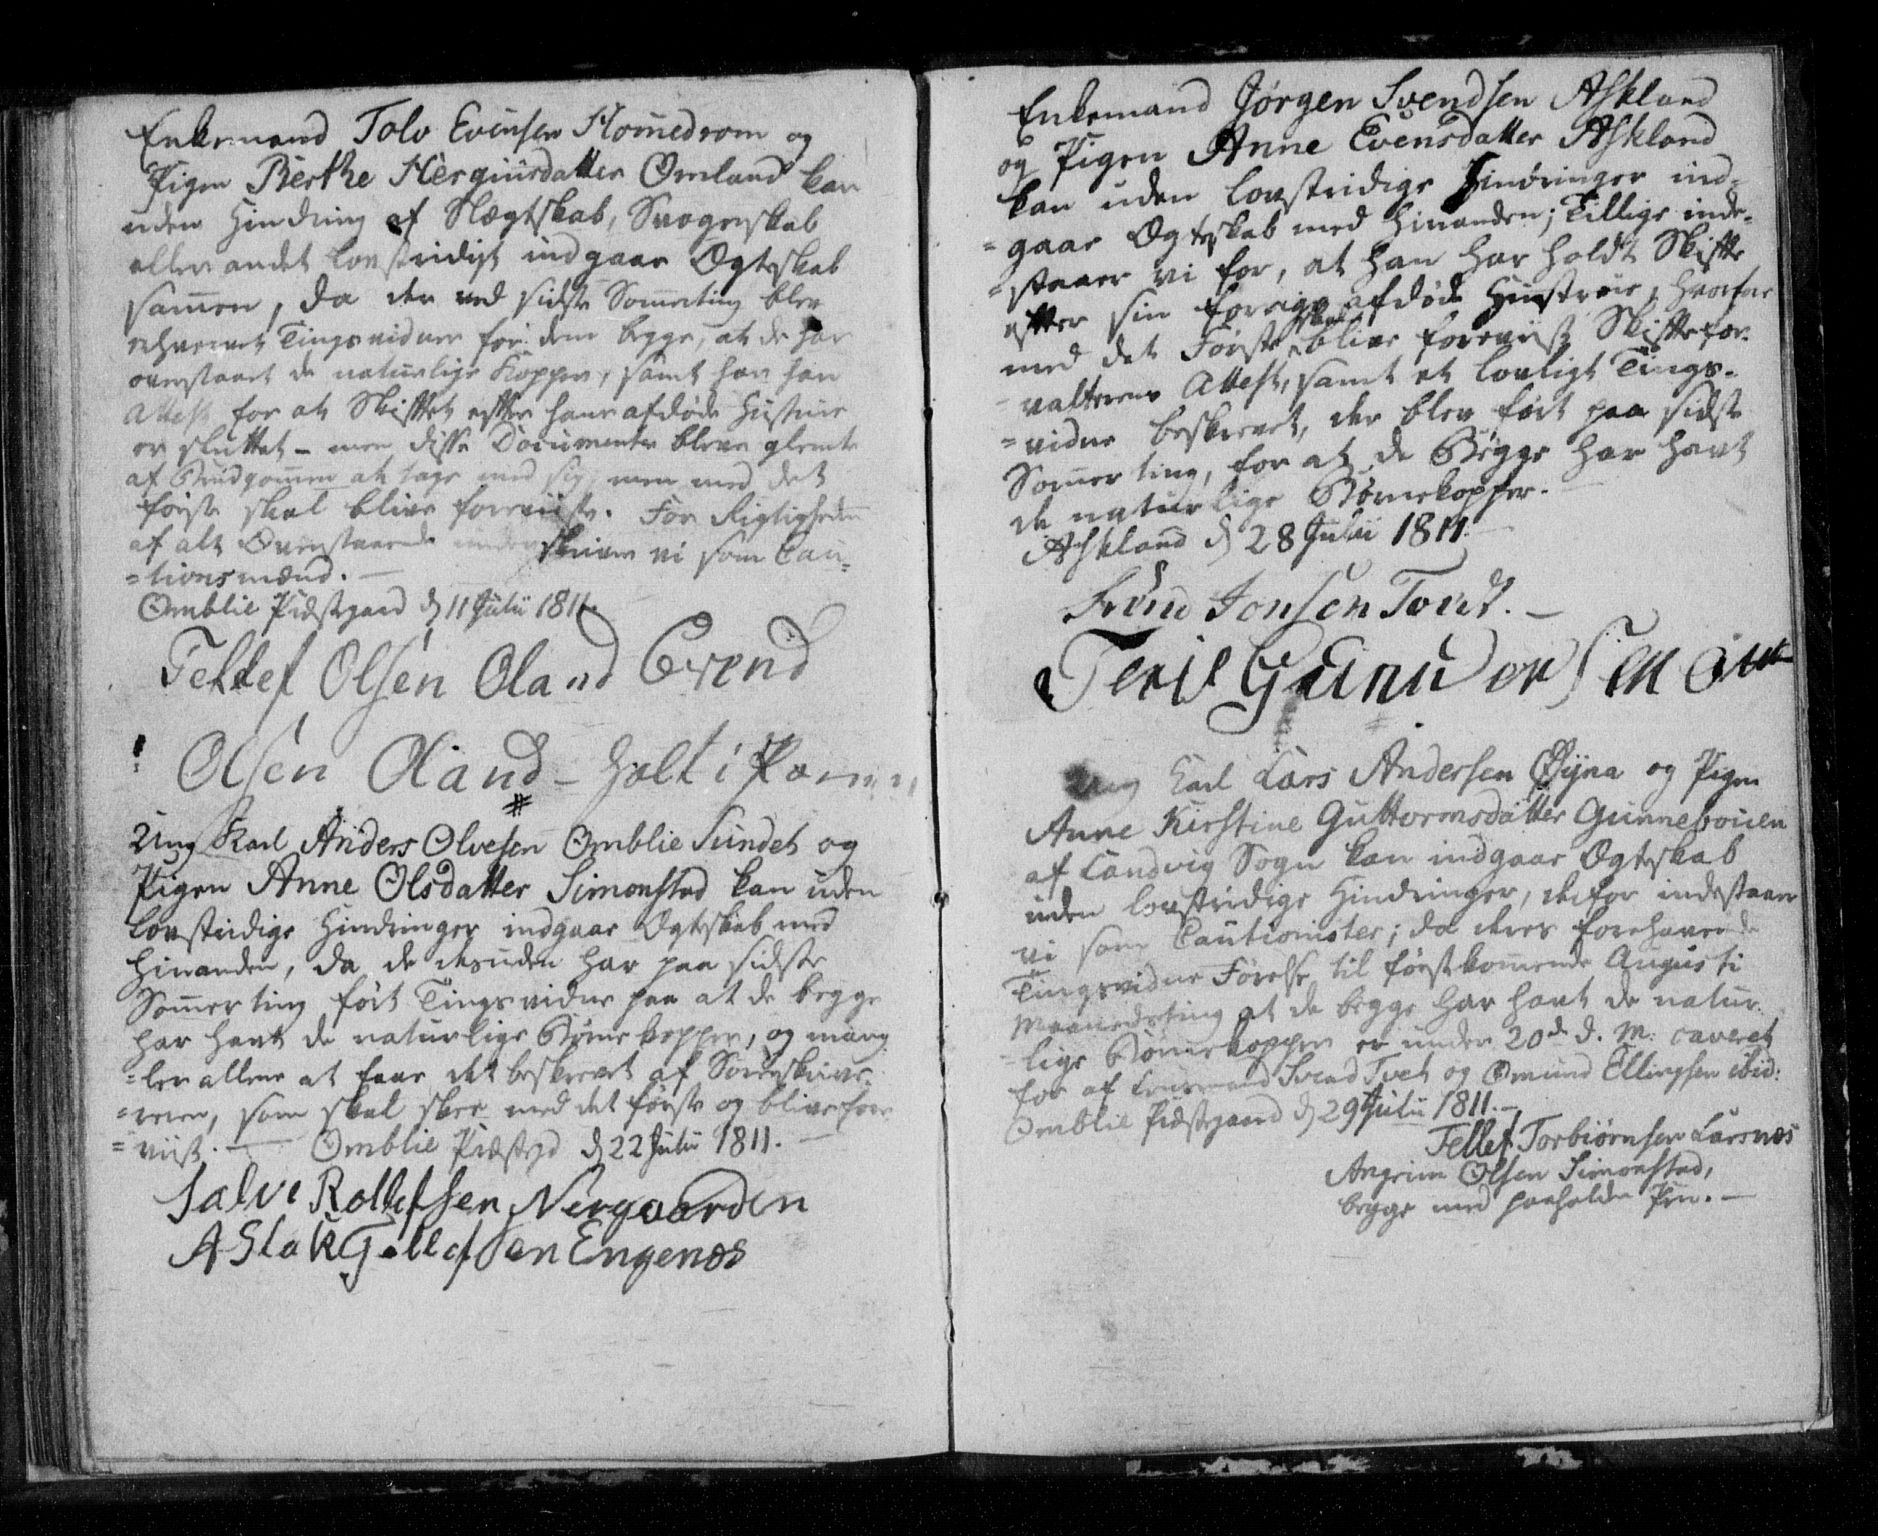 Enkemand Tolv Evensen Homedrom og
Pigen Berthe Hergiusdatter Omland kan
uden Hindring af Slægtskab, Svogerskab
eller andet lovstridigt indgaae Ægteskab
sam̅en, da der ved sidste Som̅erting blev
erhvervet Tingsvidner for dem begge, at de har
overstaaet de naturlige Kopper, samt han har
Attest for at Skiftet efter hans afdøde Hustrue
er sluttet – men disse Documenter bleve glemte
af Brudgom̅en at tage med sig, men med det
første skal blive foreviiste. For Rigtigheden
af alt Ovenstaaende underskriver vi som Cau-
=tionsmænd. —
Omblie Præstegaard d 11 Julii 1811.
Tellef Olsen Oland Evend
Olsen Oland – holt i Pænnen
Ung Karl Anders Olvesen Omblie Sundet og
Pigen Anne Olsdatter Simonstad kan uden
lovstridige Hindringer indgaae Ægteskab med
hinanden, da de desuden har paa sidste
Som̅erting ført Tingsvidne paa at de begge
har havt de naturlige Børnekopper, og mang-
=ler allene at faae det beskrevet af Sorenskrive-
=reren, som skal skee med det første og blive fore
=viist. — Omblie Præstegd d 22 Julii 1811. —
Salve Rollefsen Nergaarden
Aslak Gellefsen Engenæs
Enkemand Jørgen Svendsen Askland
og Pigen Anne Evensdatter Askland
kan uden lovstridige Hindringer ind-
=gaae Ægteskab med hinanden; Tillige inde-
=staaer vi for, at han har holdt Skifte
efter sin forrige afdøde Hustrue, hvorfor
med det Første skal blive foreviist Skiftefor-
=valterens Attest, samt et lovligt Tings-
=vidne beskrevet, der blev ført paa sidste
Som̅erting, for at de Begge har havt
de naturlige Børnekopper. —
Askland d 28 Julii 1811. —
Trond Jonsen Tveit. —
Terje Gunnersen
Ung Karl Lars Andersen Øyna og Pigen
Anne Kirstine Guttormsdatter Gunneboien
af Landvig Sogn kan indgaae Ægteskab
uden lovstridige Hindringer, derfor indestaaer
vi som Cautionister; da deres forehavende
Tingsvidne Førelse til førstkom̅ende Augusti
Maanedsting at de begge har havt de natur-
=lige Børnekopper er under 20de d. M. caveret
for af Svend Tvet og Omund Ellingsen ibid:
Omblie Præstegaard d 29 Julii 1811. —
Tellef Torbiørnsen Larsnæs
Angrim Olsen Simonstad,
begge med paaholden Pen. —